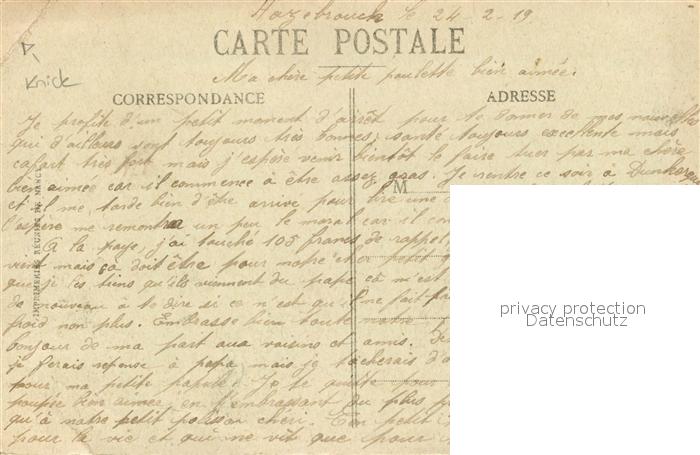 Hazebrouck le 24-2-19
CARTE POSTALE
Ma chère petite poulette bien aimée.
Knick
CORRESPONDANCE
ADRESSE
Je profite d'un petit moment d'arrêt pour te donner de mes nouvelles
qui d'ailleurs sont toujours très bonnes, santé toujours excellente mais
cafart très fort mais j'espère venir bientôt le faire tuer par ma chère
bien aimée car il commence à être assez gras. Je rentre ce soir à Dunkerque
M
et il me tarde bien d'être arrivé pour lire une
l'espère me remontra un peu le moral car il
A la paye, j'ai touché 105 francs de rappel,
vient mais ça doit être pour notre cher petit
que je les tiens qu'ils viennent du pape où m'est
de nouveau à te dire si ce n'est qu'il ne fait pas
froid non plus. Embrasse bien toute notre
bonjour de ma part aux voisins et amis. Je
je ferais reponse à papa mais je tacherais d'
pour ma petite Je te quitte pour
poupée bien aimée, en t'embrassant du plus
qu'à notre petit polisson cheri. Ton petit
pour la vie et qui ne vit que pour
IMPRIMERIES RÉUNIES DE NANCY
privacy protection
Datenschutz